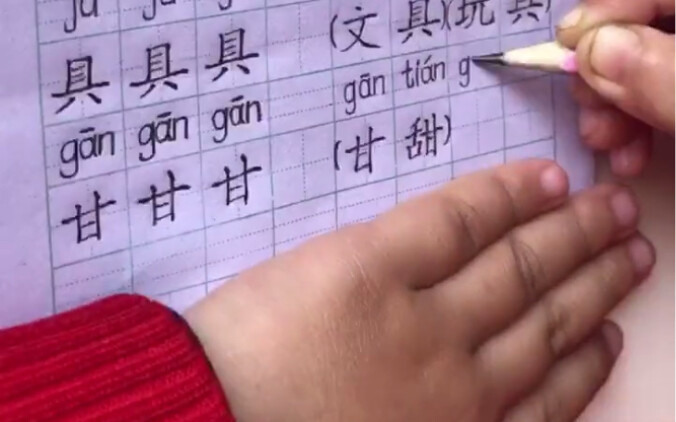 具 具 具 (文 具)(玩 具)
gān gān gān gān tián g
甘 甘 甘 (甘 甜)